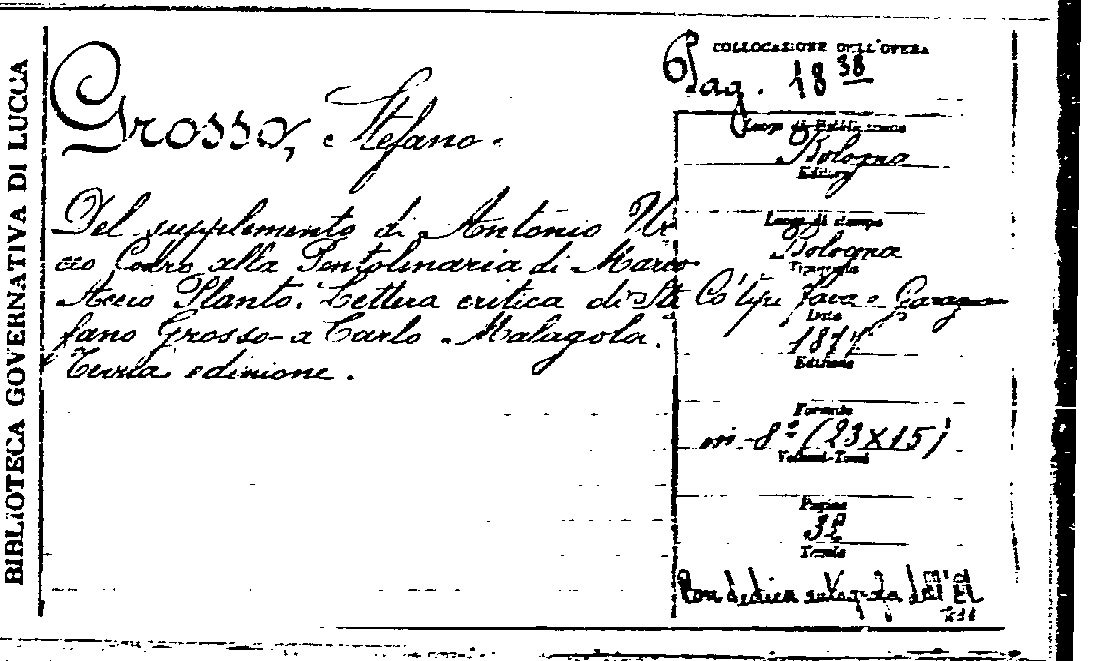 BIBLIOTECA GOVERNATIVA DI LUCCA
Grosso, Stefano.
Del supplemento di Antonio Ur
ceo Codro alla Pentolinaria di Marco
Accio Planto. Lettera critica di Ste
fano Grosso a Carlo Malagola.
Terza edizione.
COLLOCAZIONE DELL'OPERA
Pag. 18 38
Luogo di Pubblicazione
Bologna
Editore
Luogo di stampa
Bologna
Tipografia
Co' tipi Fava e Garag
Data
Edizione
Formato
in-8º (23X15)
Volumi-Tomi
Pagine
32
Tavole
Con dedica autografa dell'